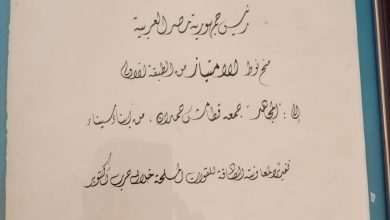 رئيس جمهورية مصر العربية
منح نوط الامتياز من الطبقة الاولى
الى : "المجاهد" جمعه قطامش حمدان ، من ابناء سيناء
تقديرا لمعاونته الصادقة للقوات المسلحة خلال حرب اكتوبر